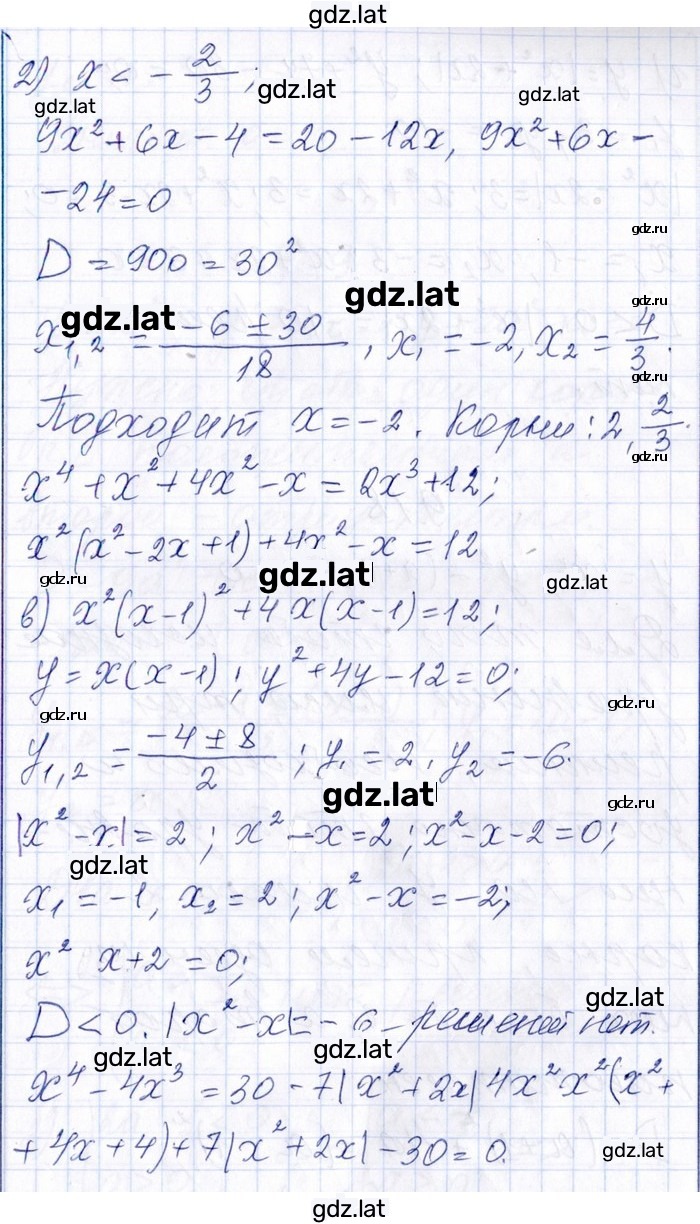 gdz.lat
2) x < -2/3;
gdz.lat gdz.lat gdz.lat
9x²+6x-4=20-12x, 9x²+6x-
-24=0
gdz.ru
D=900=30²
gdz.lat gdz.lat gdz.ru
x₁,₂ = (-6±30)/18, x₁=-2, x₂=4/3.
gdz.ru
Подходит x=-2. Корни: 2, 2/3.
gdz.ru
x⁴+x²+4x²-x=2x³+12;
x²(x²-2x+1)+4x²-x=12
gdz.lat gdz.lat gdz.lat
в) x²(x-1)²+4x(x-1)=12;
y=x(x-1); y²+4y-12=0;
gdz.ru gdz.ru
y₁,₂ = (-4±8)/2; y₁=2, y₂=-6.
gdz.lat gdz.ru
|x²-x|=2; x²-x=2; x²-x-2=0;
gdz.lat
x₁=-1, x₂=2; x²-x=-2;
x² x+2=0;
gdz.lat
D<0. |x²-x|=-6-решений нет.
gdz.lat gdz.lat
x⁴-4x³=30-7|x²+2x|4x²x²(x²+
+4x+4)+7|x²+2x|-30=0.
gdz.lat gdz.lat
gdz.lat